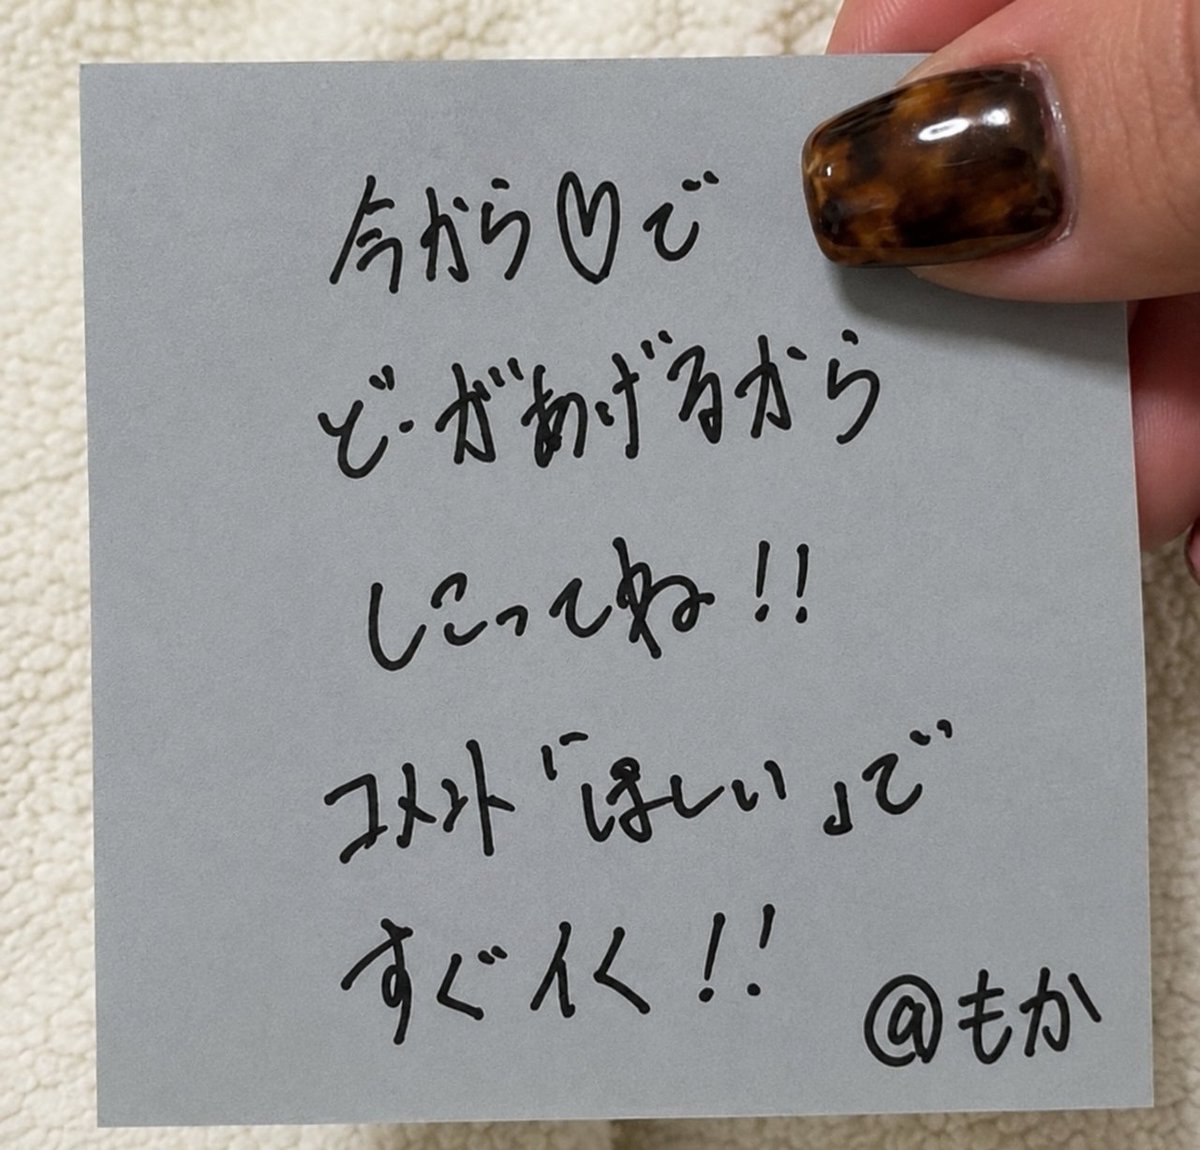 今から♡で
どーがあげるから
しこってね!!
コメント「ほしい」で
すぐイく!!
@もか